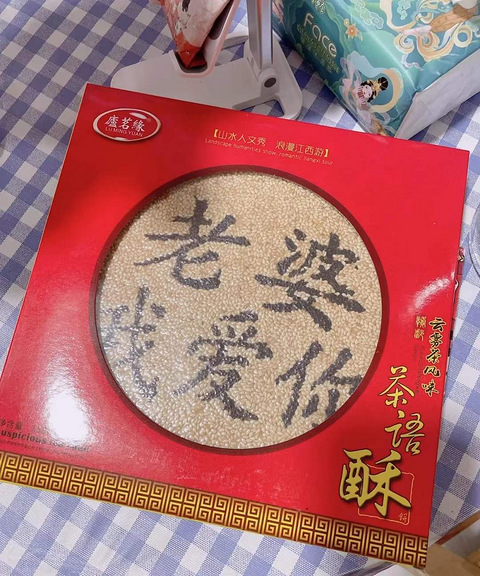 廬茗緣
LU MING YUAN
【山水人文秀 浪漫江西游】
Landscape humanities show, romantic Jiangxi tour
老婆
我爱你
云雾茶风味
茶语
酥
净含量
uspicious
Face